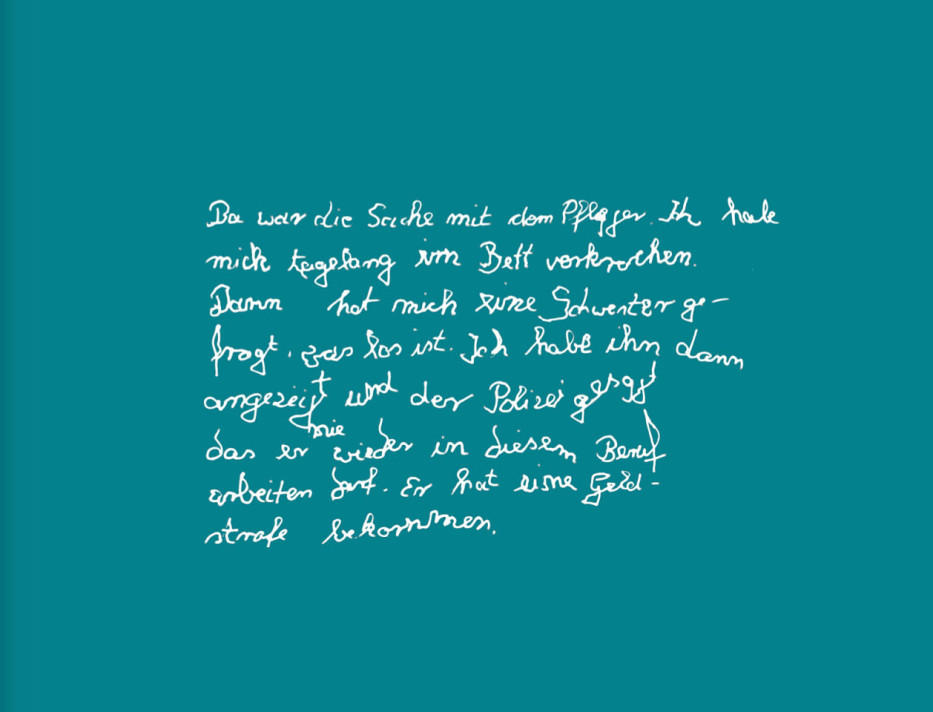 Da war die Sache mit dem Pfleger. Ich habe
mich tagelang im Bett verkrochen.
Dann hat mich eine Schwester ge-
fragt, was los ist. Ich habe ihn dann
angezeigt und der Polizei gesagt
das er nie wieder in diesem Beruf
arbeiten darf. Er hat eine Geld-
strafe bekommen.